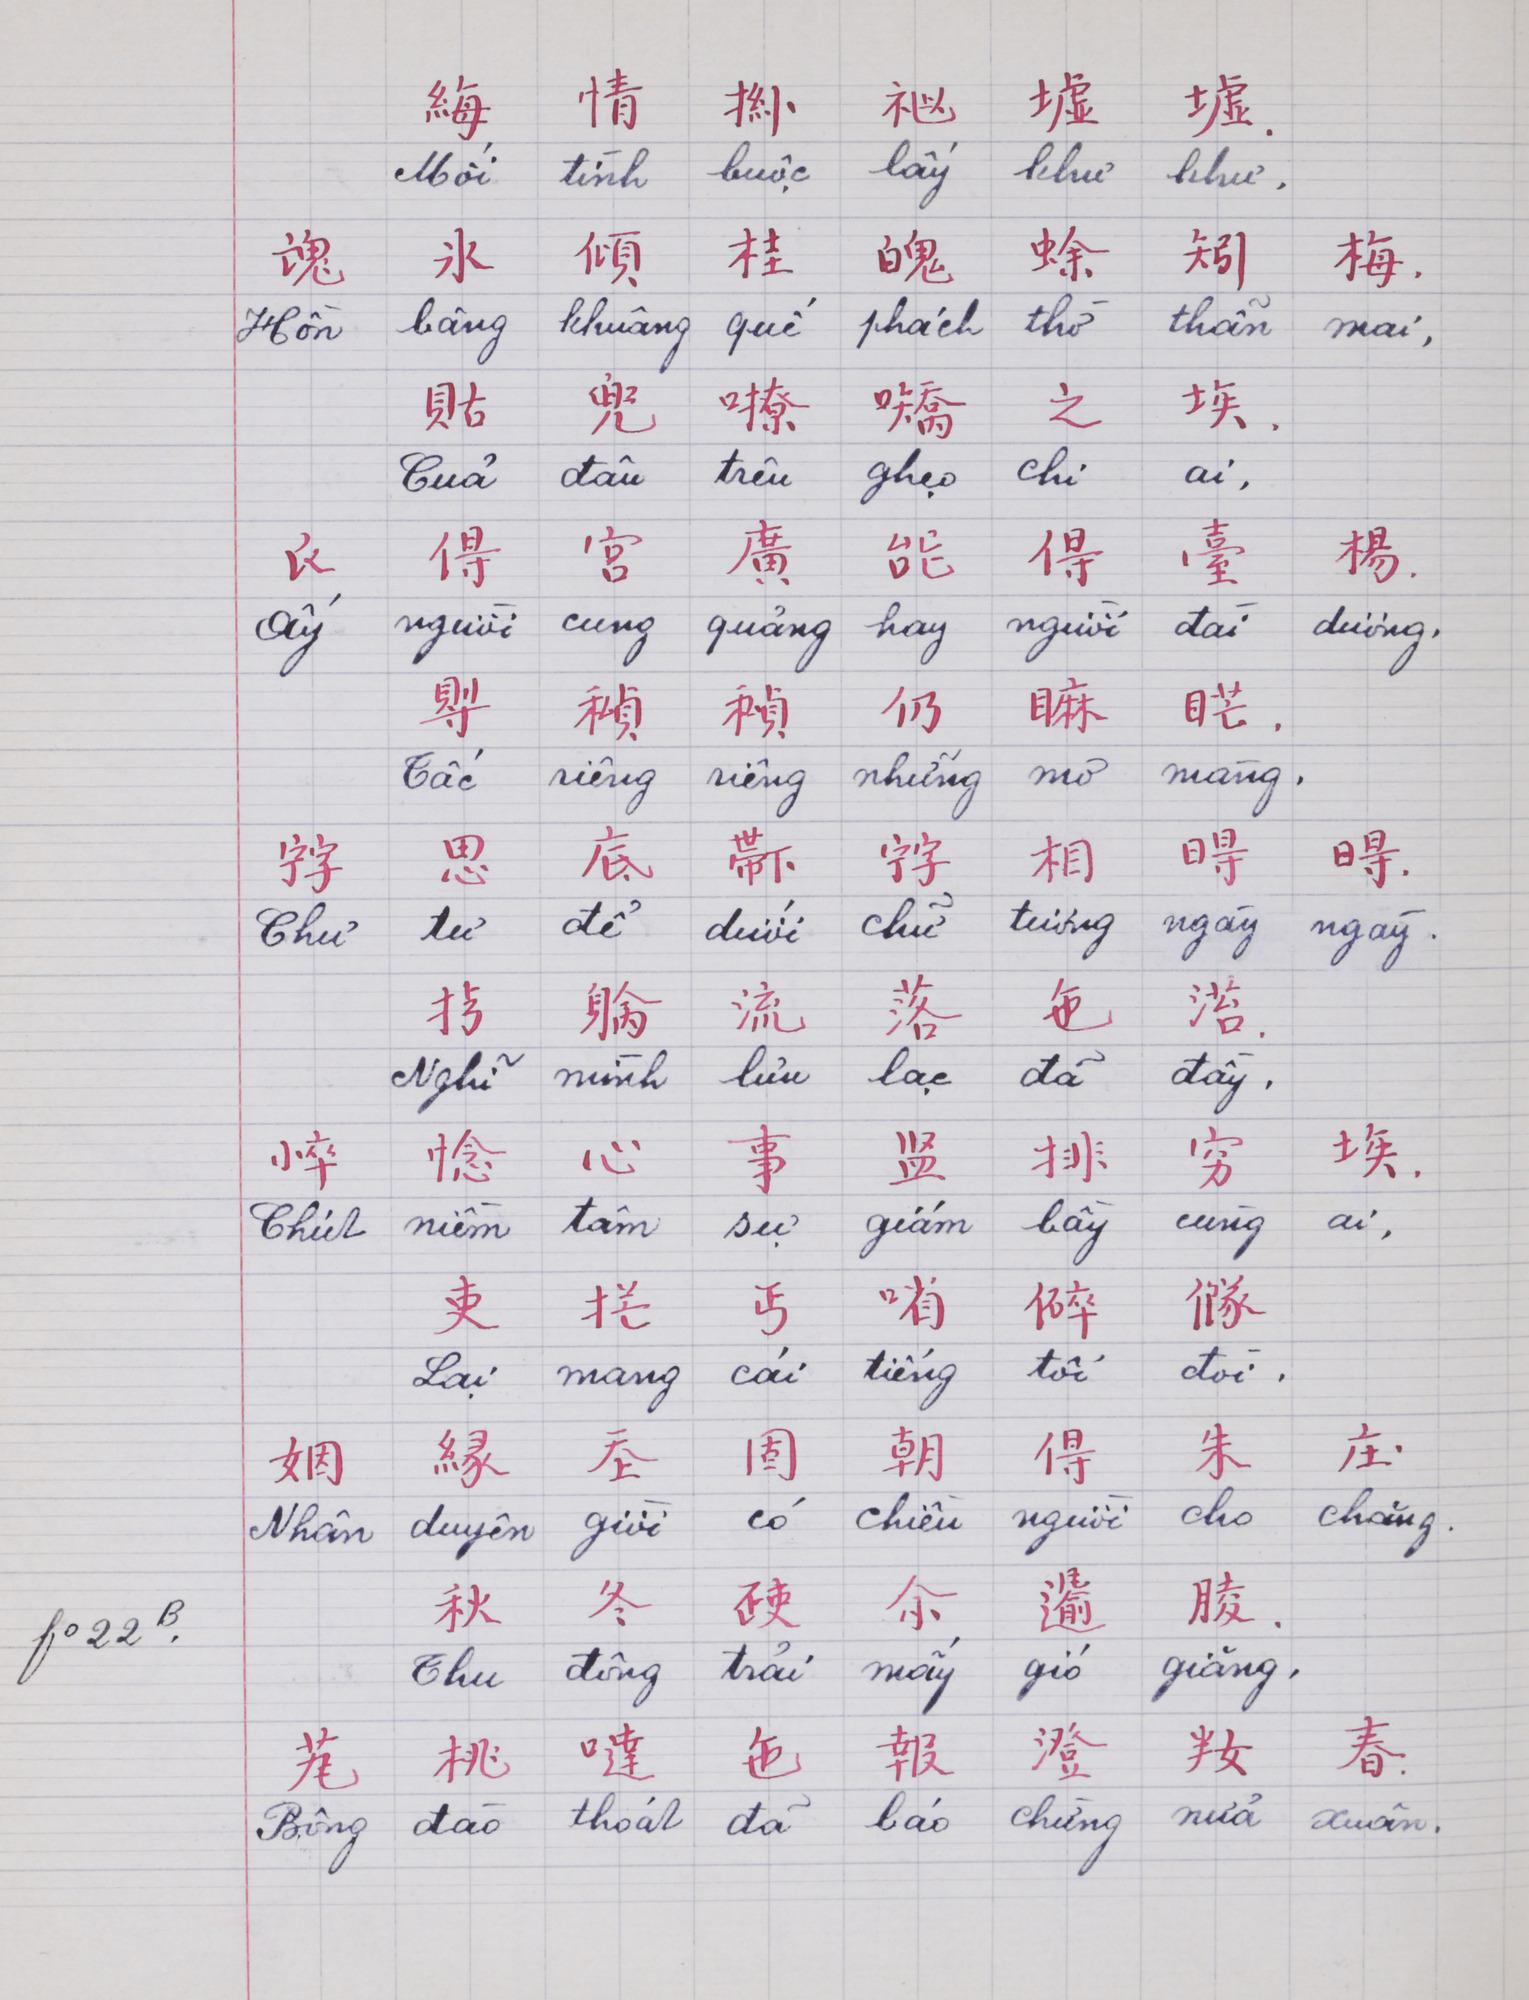 緍情𢬗𥘀墟墟.
Mối tình buộc lấy khư khư,
魂氷傾桂魄蜍矧梅.
Hồn bâng khuâng quế phách thờ thẫn mai,
貼兜嘹嚆之埃.
Của đâu trêu ghẹo chi ai,
𧘇得宮廣能得臺楊.
Ấy người cung quảng hay người đài dương,
𡬷䫀䫀仍𥊚𥆄.
Tấc riêng riêng những mơ màng,
𡦂思底𠁑𡦂相𣈜𣈜.
Chư tư để dưới chữ tương ngày ngày.
𢪀𨉟流落㐌𣹓.
Nghĩ mình lưu lạc đã đầy,
𡭧惗心事监排穷埃.
Chút niềm tâm sự giám bầy cùng ai,
吏𢬄丐㗂𠋦𠐞
Lại mang cái tiếng tôi đòi,
姻緣𡗶固朝得朱庄.
Nhân duyên giời có chiều người cho chăng.
秋冬𣦰𠇍𨗺𦝄.
Thu đông trải mấy gió giăng,
fº 22 B.
芼桃噠㐌報澄姅春.
Bông đào thoát đã báo chừng nửa xuân.